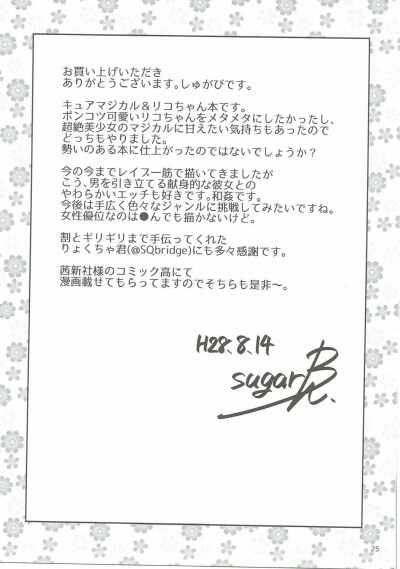 お買い上げいただき
ありがとうございます。しゅがびです。
キュアマジカル＆リコちゃん本です。
ポンコツ可愛いリコちゃんをメタメタにしたかったし、
超絶美少女のマジカルに甘えたい気持ちもあったので
どっちもやりました。
勢いのある本に仕上がったのではないでしょうか？
今の今までレイプ一筋で描いてきましたが
こう、男を引き立てる献身的な彼女との
やわらかいエッチも好きです。和姦です。
今後は手広く色々なジャンルに挑戦してみたいですね。
女性優位なのは●んでも描かないけど。
割とギリギリまで手伝ってくれた
りょくちゃ君(@SQbridge)にも多々感謝です。
茜新社様のコミック高にて
漫画載せてもらってますのでそちらも是非〜。
H28.8.14
sugar
25